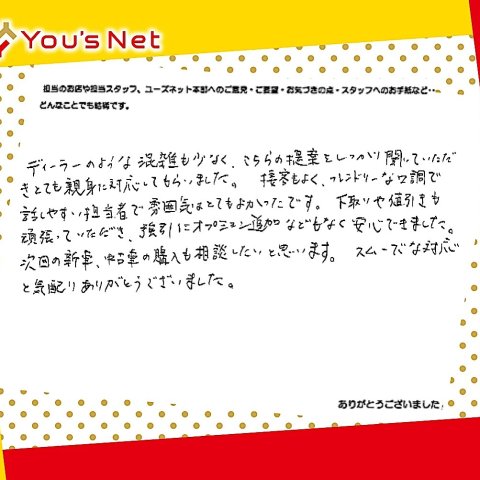 You's Net
担当のお店や担当スタッフ、ユーズネット本部へのご意見・ご要望・お気づきの点・スタッフへのお手紙など…
どんなことでも結構です。
ディーラーのような混雑も少なく、こちらの提案をしっかり聞いていただ
きとても親身に対応してもらいました。 接客もよく、フレンドリーな口調で
話しやすい担当者で雰囲気はとてもよかったです。 下取りや値引きも
頑張っていただき、強引にオプション追加などもなく安心できました。
次回の新車、中古車の購入も相談したいと思います。 スムーズな対応
と気配りありがとうございました。
ありがとうございました